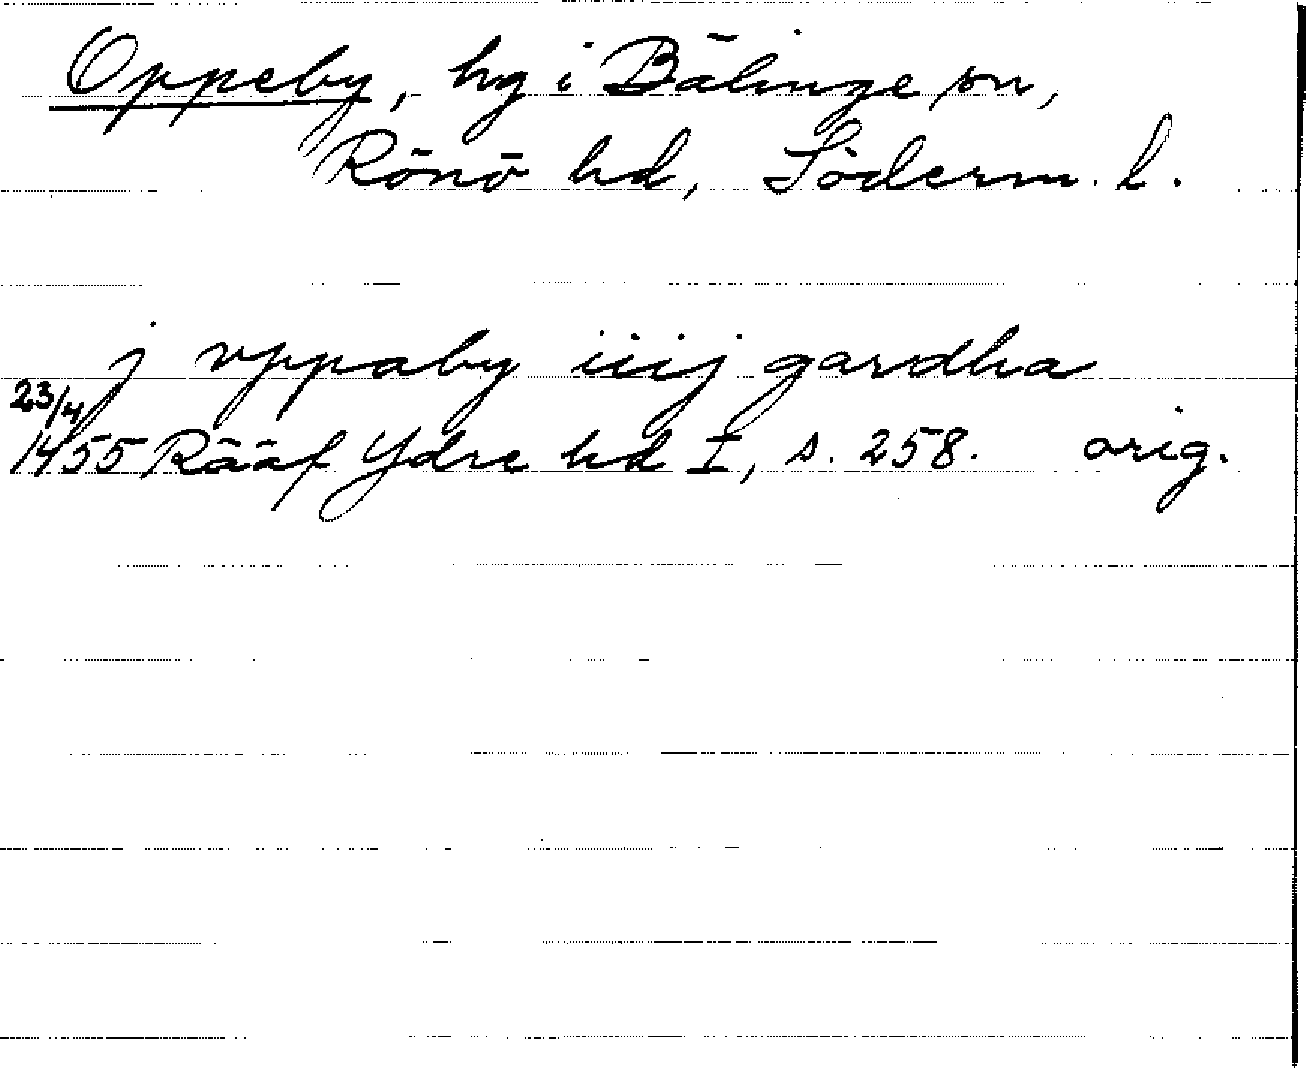 Oppeby, hg i Bälinge sn,
Rönö hd, Söderm. l.
j vppaby iiij gardha
23/4
1455 Rääf Ydre hd I, s. 258. orig.